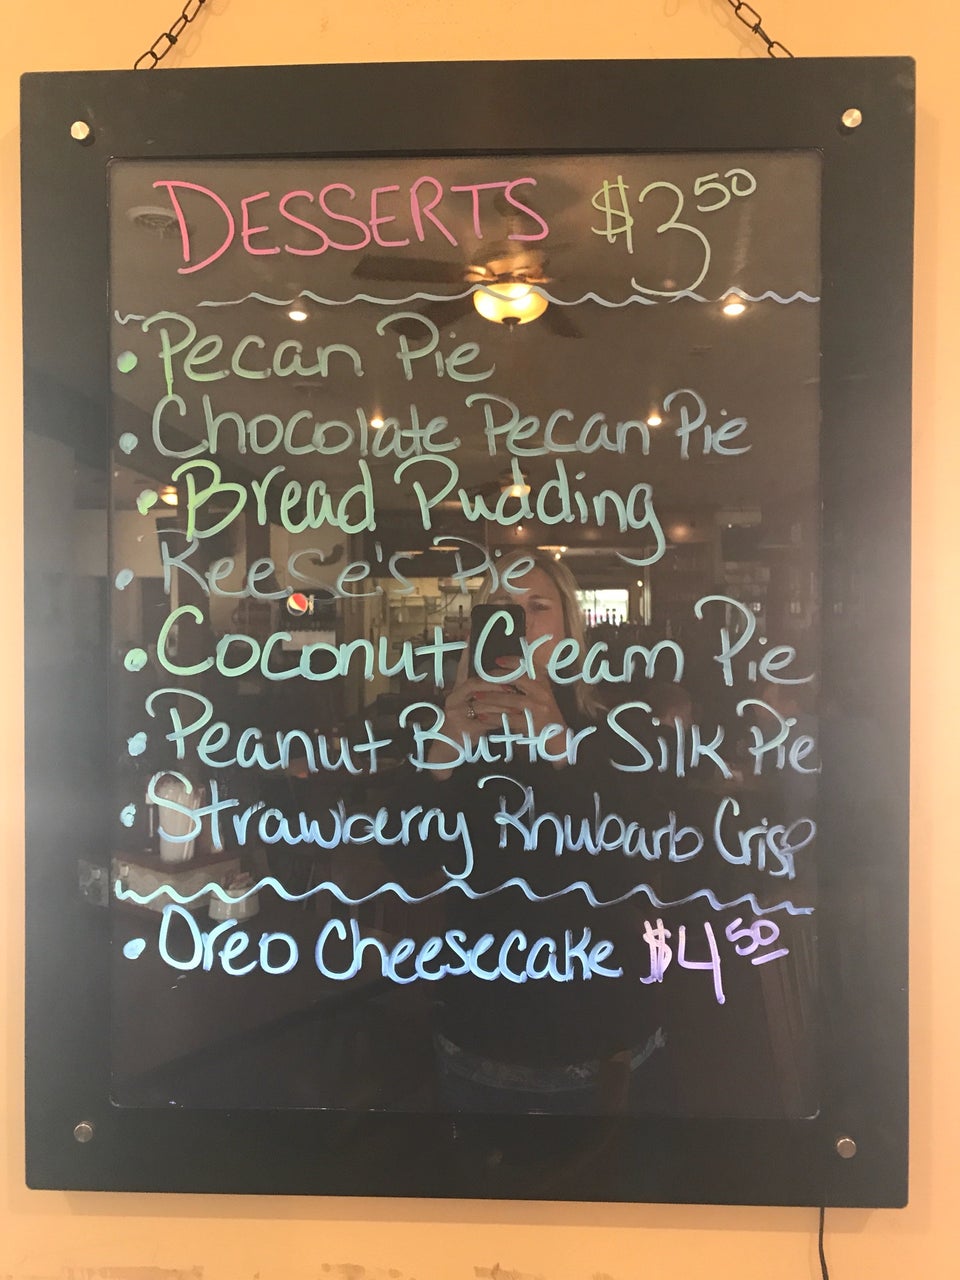 DESSERTS $3 50
• Pecan Pie
• Chocolate Pecan Pie
• Bread Pudding
• Reese's Pie
• Coconut Cream Pie
• Peanut Butter Silk Pie
• Strawberry Rhubarb Crisp
• Oreo Cheesecake $4 50